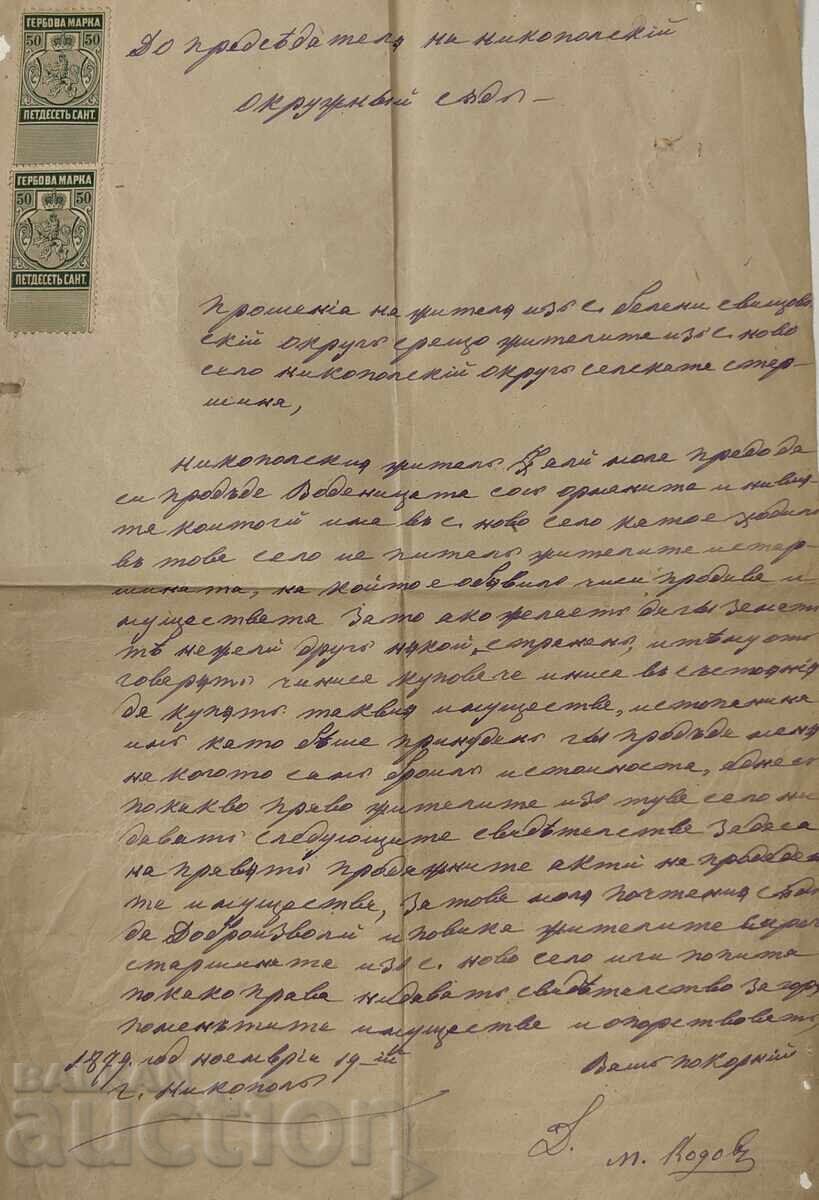 ГЕРБОВА МАРКА
50 50
ПЕТДЕСЕТЬ САНТ.
ГЕРБОВА МАРКА
50 50
ПЕТДЕСЕТЬ САНТ.
До председателя на никополскій
окружный съдъ –
прошенія на жителя изъ с. белени свищов-
скій округъ срещо жителите изъ с. ново
село никополскій округъ селската стар-
шина,
никополския жителъ моля предо да
си продъде Воденицата сосъ и ниви-
те коитогй има въ с. ново село като е ходилъ
въ това село и питалъ жителите и стар-
шината, на който е обявилъ чиси продава и-
муществата Зато ако желаетъ дагы Земетъ
тѣ нежели другъ някой, страненъ, и тѣму отъ
говарятъ чиниса куповаче и ниса въ състояния
да купятъ таквия имущества, и стопанина
имъ като бѣше принуденъ гы продъде мене
на когото самъ броилъ и стойноста, а днесъ
по какво право жителите изъ туве село не
даватъ следующите свидѣтелстве За даса
направятъ продажните актй на продадени
те имущества, За това моля почтения съдъ
да Доброизволй и повика жителите
старшината изъ с. ново село и ги попита
по како права недаватъ свидѣтелство За гору
поменътите имущества и опорствоватъ
1879. год ноемврія 19-ій
г. Никополъ
Вашъ покорній
Д. М. Кодовъ
BALKAN
auction